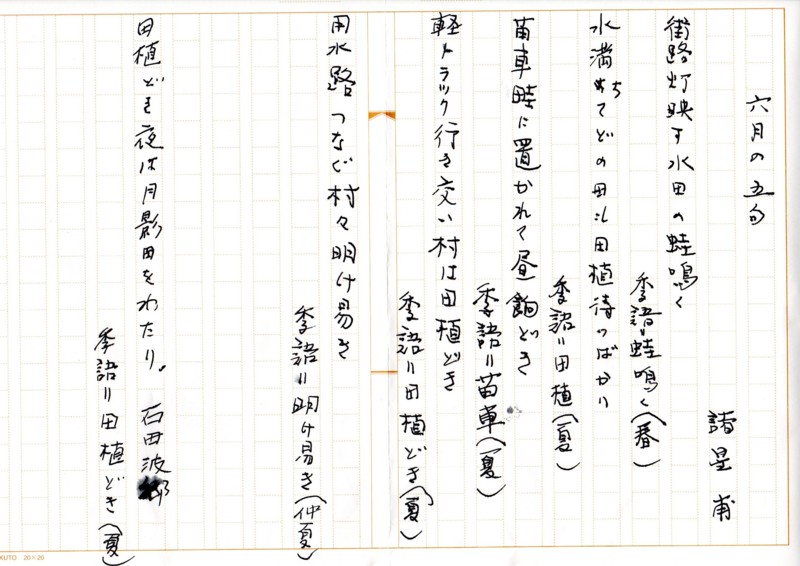 六月の五句
諸星甫
街路灯映す水田の蛙鳴く
季語=蛙鳴く(春)
水満ちてどの田も田植待つばかり
季語=田植(夏)
苗車畦に置かれて昼餉どき
季語=苗車(夏)
軽トラック行き交い村は田植どき
季語=田植どき(夏)
用水路つなぐ村々明け易き
季語=明け易き(仲夏)
田植どき夜は月影田をわたり。 石田波郷
季語=田植どき(夏)
KUTO 20×20